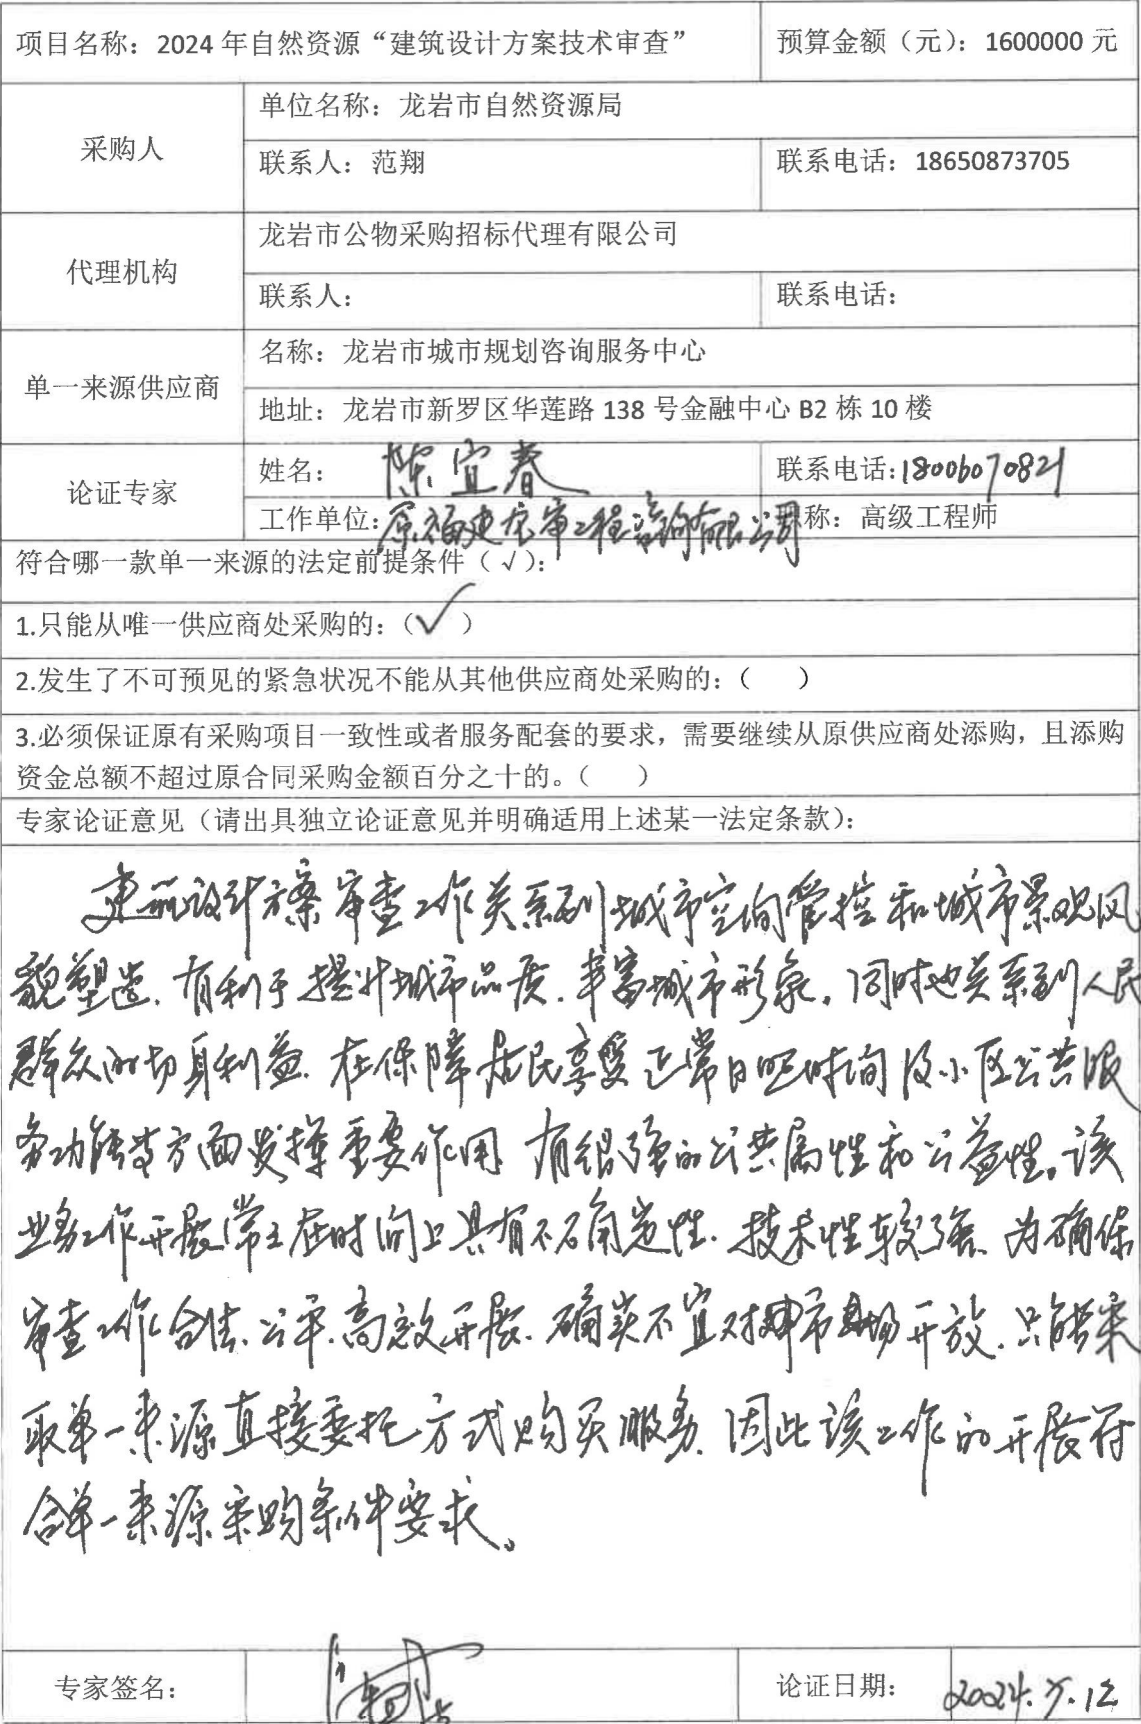 项目名称：2024年自然资源“建筑设计方案技术审查” 预算金额（元）：1600000元
采购人
单位名称：龙岩市自然资源局
联系人：范翔 联系电话：18650873705
代理机构
龙岩市公物采购招标代理有限公司
联系人： 联系电话：
单一来源供应商
名称：龙岩市城市规划咨询服务中心
地址：龙岩市新罗区华莲路138号金融中心B2栋10楼
论证专家
姓名：陈宜春 联系电话：18006070821
工作单位：原福建龙审工程咨询有限公司 称：高级工程师
符合哪一款单一来源的法定前提条件（√）：
1.只能从唯一供应商处采购的：（✓）
2.发生了不可预见的紧急状况不能从其他供应商处采购的：（ ）
3.必须保证原有采购项目一致性或者服务配套的要求，需要继续从原供应商处添购，且添购
资金总额不超过原合同采购金额百分之十的。（ ）
专家论证意见（请出具独立论证意见并明确适用上述某一法定条款）：
建筑设计方案审查工作关系到城市空间管控和城市景观风
貌塑造，有利于提升城市品质，丰富城市形象。同时也关系到人民
群众的切身利益，在保障居民享受正常日照时间及小区公共服
务功能等方面发挥重要作用，有很强的公共属性和公益性。该
业务工作开展常在时间上具有不确定性，技术性较强，为确保
审查工作合法、公平、高效开展，确实不宜对市场开放，只能采
取单一来源直接委托方式购买服务，因此该工作的开展符
合单一来源采购条件要求。
专家签名： 论证日期：2024.7.12